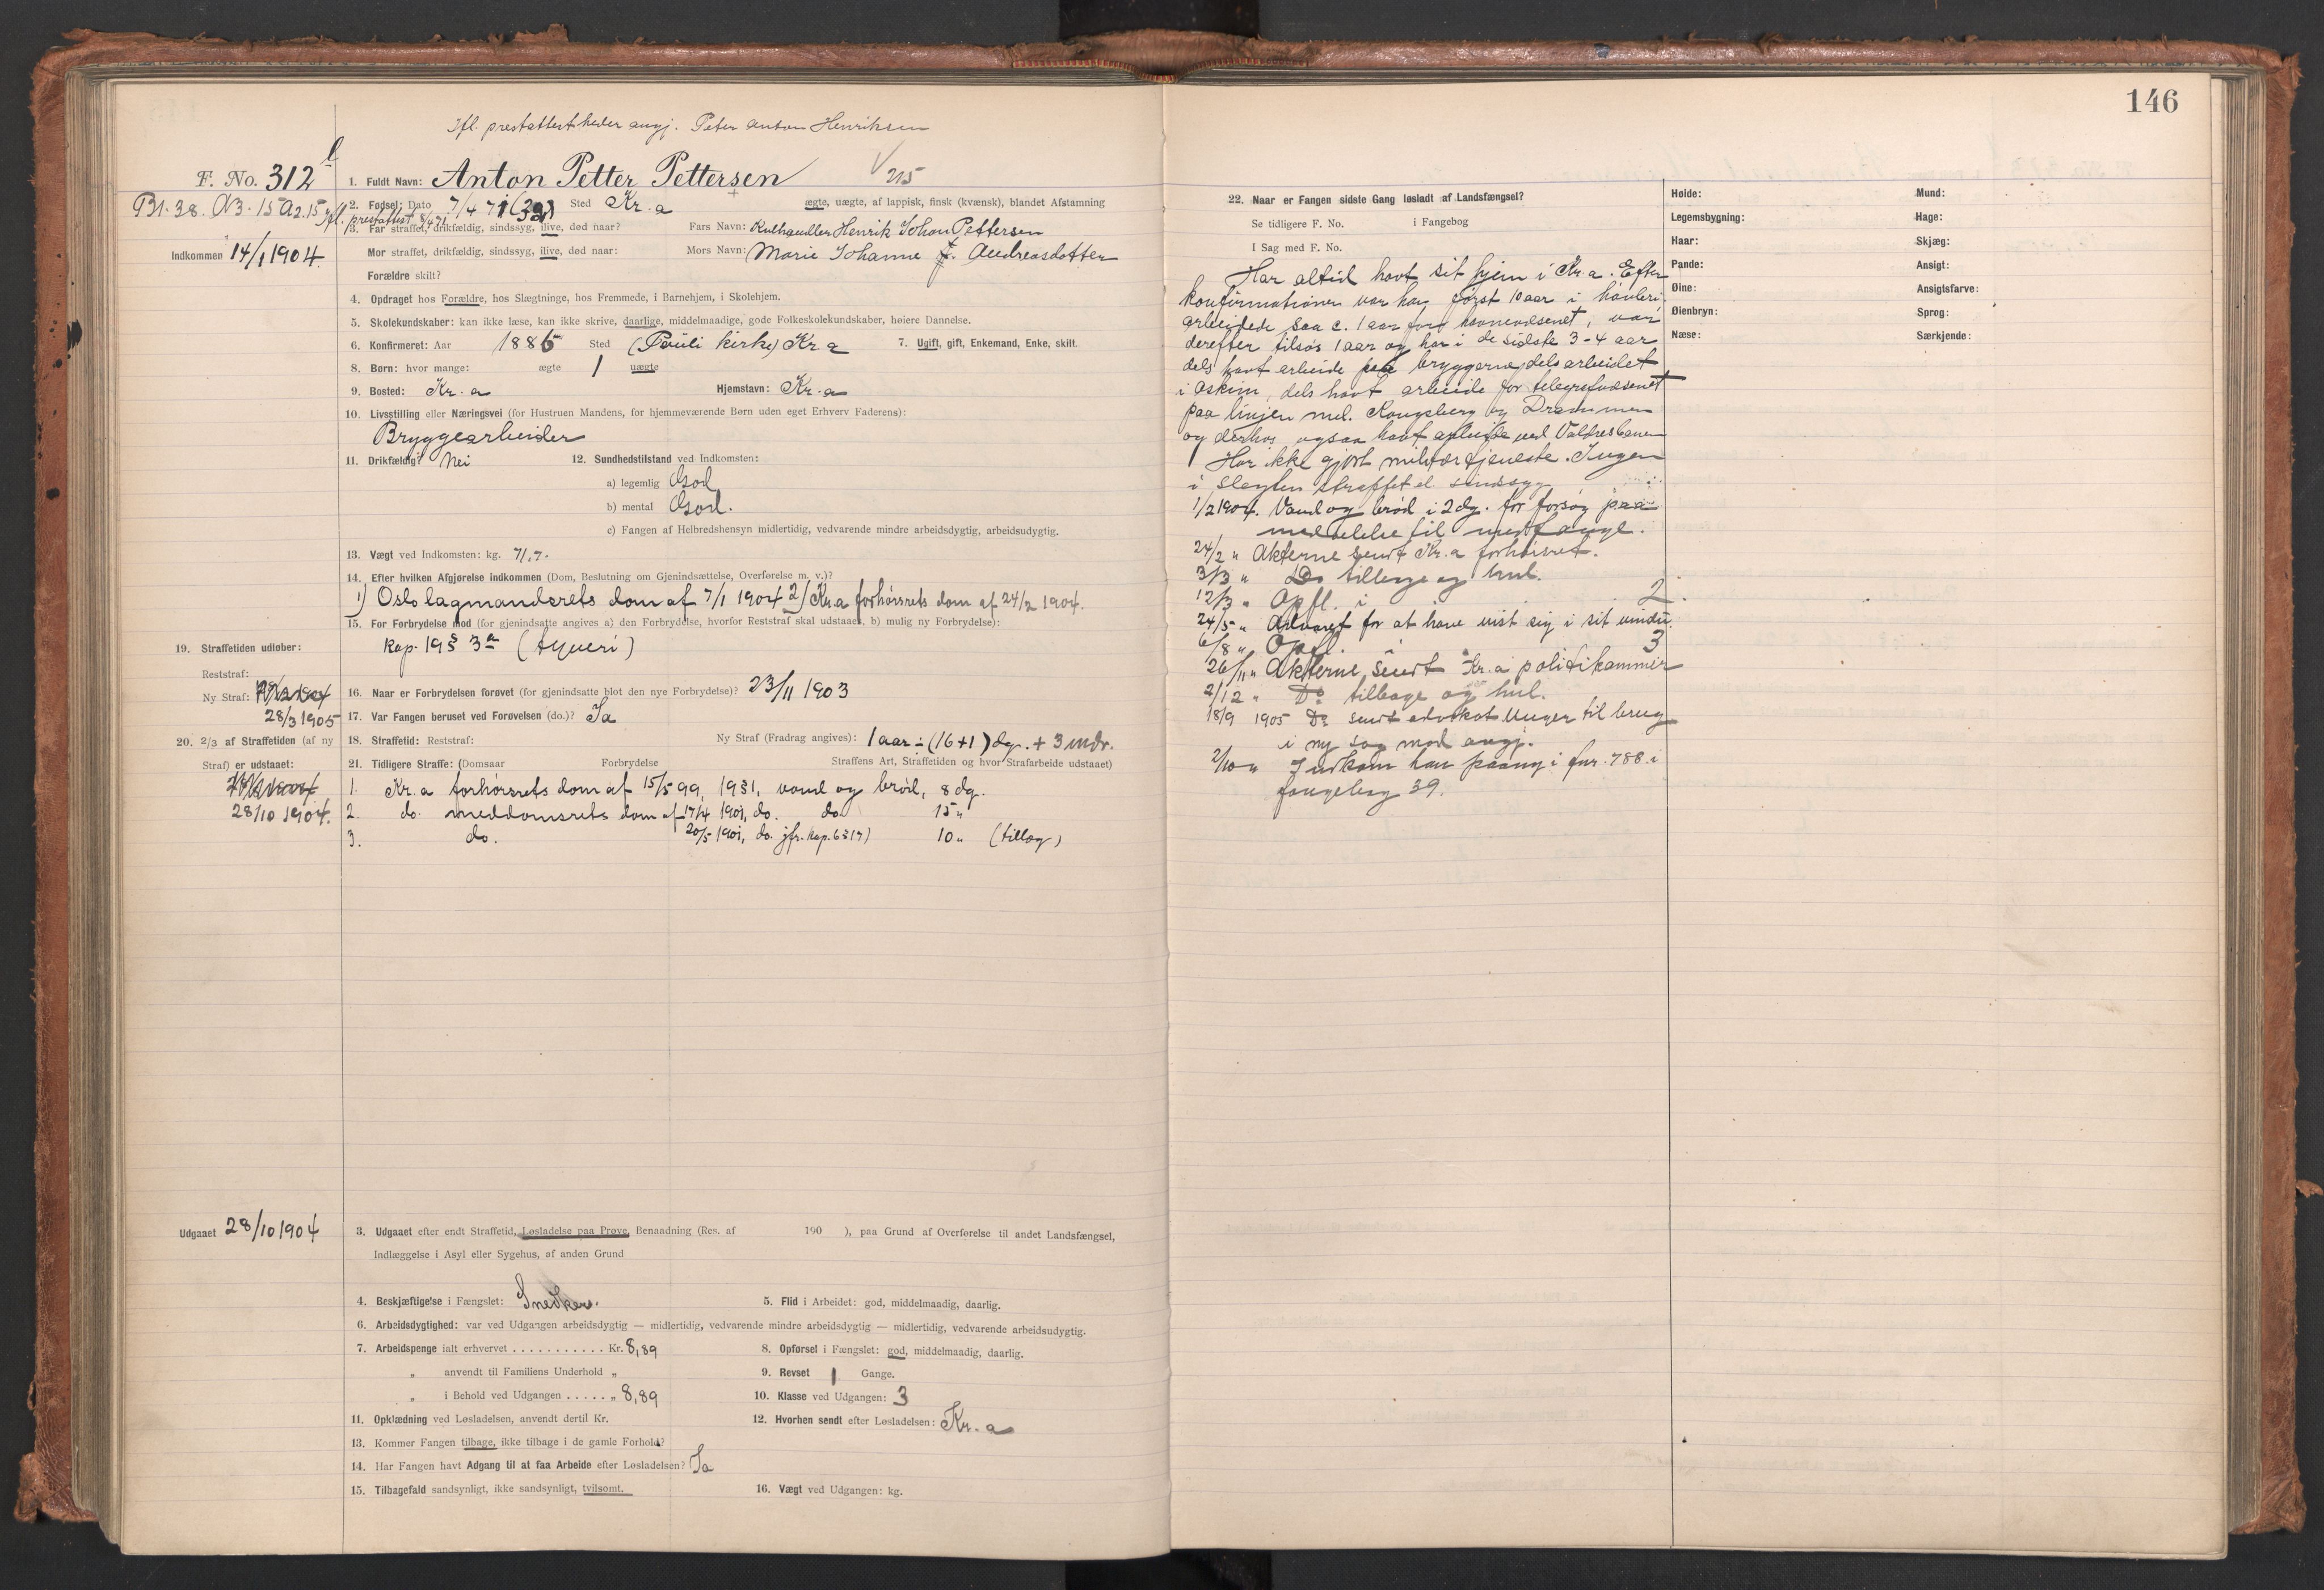 Ifl. prestattest heder angj. Peter Anton Henriksen
F. No. 312
1. Fuldt Navn: Anton Petter Pettersen
215
Bl. 38. N3. 15 A2. 15
2. Fødsel: Dato 7/4 71 (32) Sted Kr.a ægte, uægte, af lappisk, finsk (kvænsk), blandet Afstamning
Ifl. prestattest 8/4 71
3. Far straffet, drikfældig, sindssyg, ilive, død naar? Fars Navn: Kulhandler Henrik Johan Pettersen
Indkommen 14/1 1904.
Mor straffet, drikfældig, sindssyg, ilive, død naar: Mors Navn: Marie Johanne f. Andreasdotter
Forældre skilt?
4. Opdraget hos Forældre, hos Slægtninge, hos Fremmede, i Barnehjem, i Skolehjem.
5. Skolekundskaber: kan ikke læse, kan ikke skrive, daarlige, middelmaadige, gode Folkeskolekundskaber, høiere Dannelse.
6. Konfirmeret: Aar 1886 Sted (Pauli kirke) Kr.a 7. Ugift, gift, Enkemand, Enke, skilt.
8. Børn: hvor mange: ægte 1 uægte
9. Bosted: Kr.a Hjemstavn: Kr.a
10. Livsstilling eller Næringsvei (for Hustruen Mandens, for hjemmeværende Børn uden eget Erhverv Faderens):
Bryggearbeider
11. Drikfældig? Nei 12. Sundhedstilstand ved Indkomsten:
a) legemlig God
b) mental God.
c) Fangen af Helbredshensyn midlertidig, vedvarende mindre arbeidsdygtig, arbeidsudygtig.
13. Vægt ved Indkomsten: kg. 71,7.
14. Efter hvilken Afgjørelse indkommen (Dom, Beslutning om Gjenindsættelse, Overførelse m. v.)?
1) Oslo lagmandsrets dom af 7/1 1904 2) Kr.a forhørsrets dom af 24/2 1904.
15. For Forbrydelse mod (for gjenindsatte angives a) den Forbrydelse, hvorfor Reststraf skal udstaaes, b) mulig ny Forbrydelse):
Kap. 19 § 3a (tyveri)
19. Straffetiden udløber:
Reststraf:
Ny Straf:
28/3 1905
16. Naar er Forbrydelsen forøvet (for gjenindsatte blot den nye Forbrydelse)? 23/11 1903
17. Var Fangen beruset ved Forøvelsen (do.)? Ja
20. 2/3 af Straffetiden (af ny
Straf) er udstaaet:
28/10 1904.
18. Straffetid: Reststraf: Ny Straf (Fradrag angives): 1 aar ÷ (16+1) dg. + 3 mdr.
21. Tidligere Straffe: (Domsaar Forbrydelse Straffens Art, Straffetiden og hvor Strafarbeide udstaaet)
1. Kr.a forhørsrets dom af 15/5 99, 19§1, vand og brød, 8 dg.
2. do. meddomsrets dom af 17/4 1901, do. do. 15 „
3. do. 20/5 1901, do. jfr. kap. 6 § 19) 10 „ (tillæg)
Udgaaet 28/10 1904
3. Udgaaet efter endt Straffetid, Løsladelse paa Prøve, Benaadning (Res. af 190 ), paa Grund af Overførelse til andet Landsfængsel,
Indlæggelse i Asyl eller Sygehus, af anden Grund
4. Beskjæftigelse i Fængslet: Snedker. 5. Flid i Arbeidet: god, middelmaadig, daarlig.
6. Arbeidsdygtighed: var ved Udgangen arbeidsdygtig — midlertidig, vedvarende mindre arbeidsdygtig — midlertidig, vedvarende arbeidsudygtig.
7. Arbeidspenge ialt erhvervet ........... Kr. 8,89 8. Opførsel i Fængslet: god, middelmaadig, daarlig.
„ anvendt til Familiens Underhold „ 9. Revset 1 Gange.
„ i Behold ved Udgangen ..... „ 8,89 10. Klasse ved Udgangen: 3
11. Opklædning ved Løsladelsen, anvendt dertil Kr. 12. Hvorhen sendt efter Løsladelsen: Kr.a
13. Kommer Fangen tilbage, ikke tilbage i de gamle Forhold?
14. Har Fangen havt Adgang til at faa Arbeide efter Løsladelsen? Ja
15. Tilbagefald sandsynligt, ikke sandsynligt, tvilsomt. 16. Vægt ved Udgangen: kg.
146
22. Naar er Fangen sidste Gang løsladt af Landsfængsel?
Se tidligere F. No. i Fangebog
I Sag med F. No.
Har altid havt sit hjem i Kr.a. Efter
konfirmationen var han først 10 aar i
arbeidede saa c. 1 aar for havnevæsenet, var
derefter tilsøs 1 aar og har i de sidste 3-4 aar
dels havt arbeide paa bryggerne, dels arbeidet
i Askim, dels havt arbeide for telegrafvæsenet
paa linjen mel. Kongsberg og Drammen
og derhos ogsaa havt arbeide ved Valdresbanen
Har ikke gjort militærtjeneste. Ingen
i slegten straffet el. sindssyg.
1/2 1904. Vand og brød i 2 dg. for forsøg paa
meddelelse til medfange.
24/2 „ Akterne sendt Kr.a forhørsret.
3/3 „ Do tilbage og hul.
12/3 „ Opfl. i 2.
24/5 „ Advaret for at have vist sig i sit vindu.
6/8 „ Opfl. i 3
26/11 „ Akterne sendt Kr.a politikammer
2/12 „ Do tilbage og hul.
18/9 1905 Do sendt advokat Unger til brug
i ny sag mod angj.
2/10 „ Indkom han paany i fnr. 788 i
fangebog 39.
Høide:
Legemsbygning:
Haar:
Pande:
Øine:
Øienbryn:
Næse:
Mund:
Hage:
Skjæg:
Ansigt:
Ansigtsfarve:
Sprog:
Særkjende: